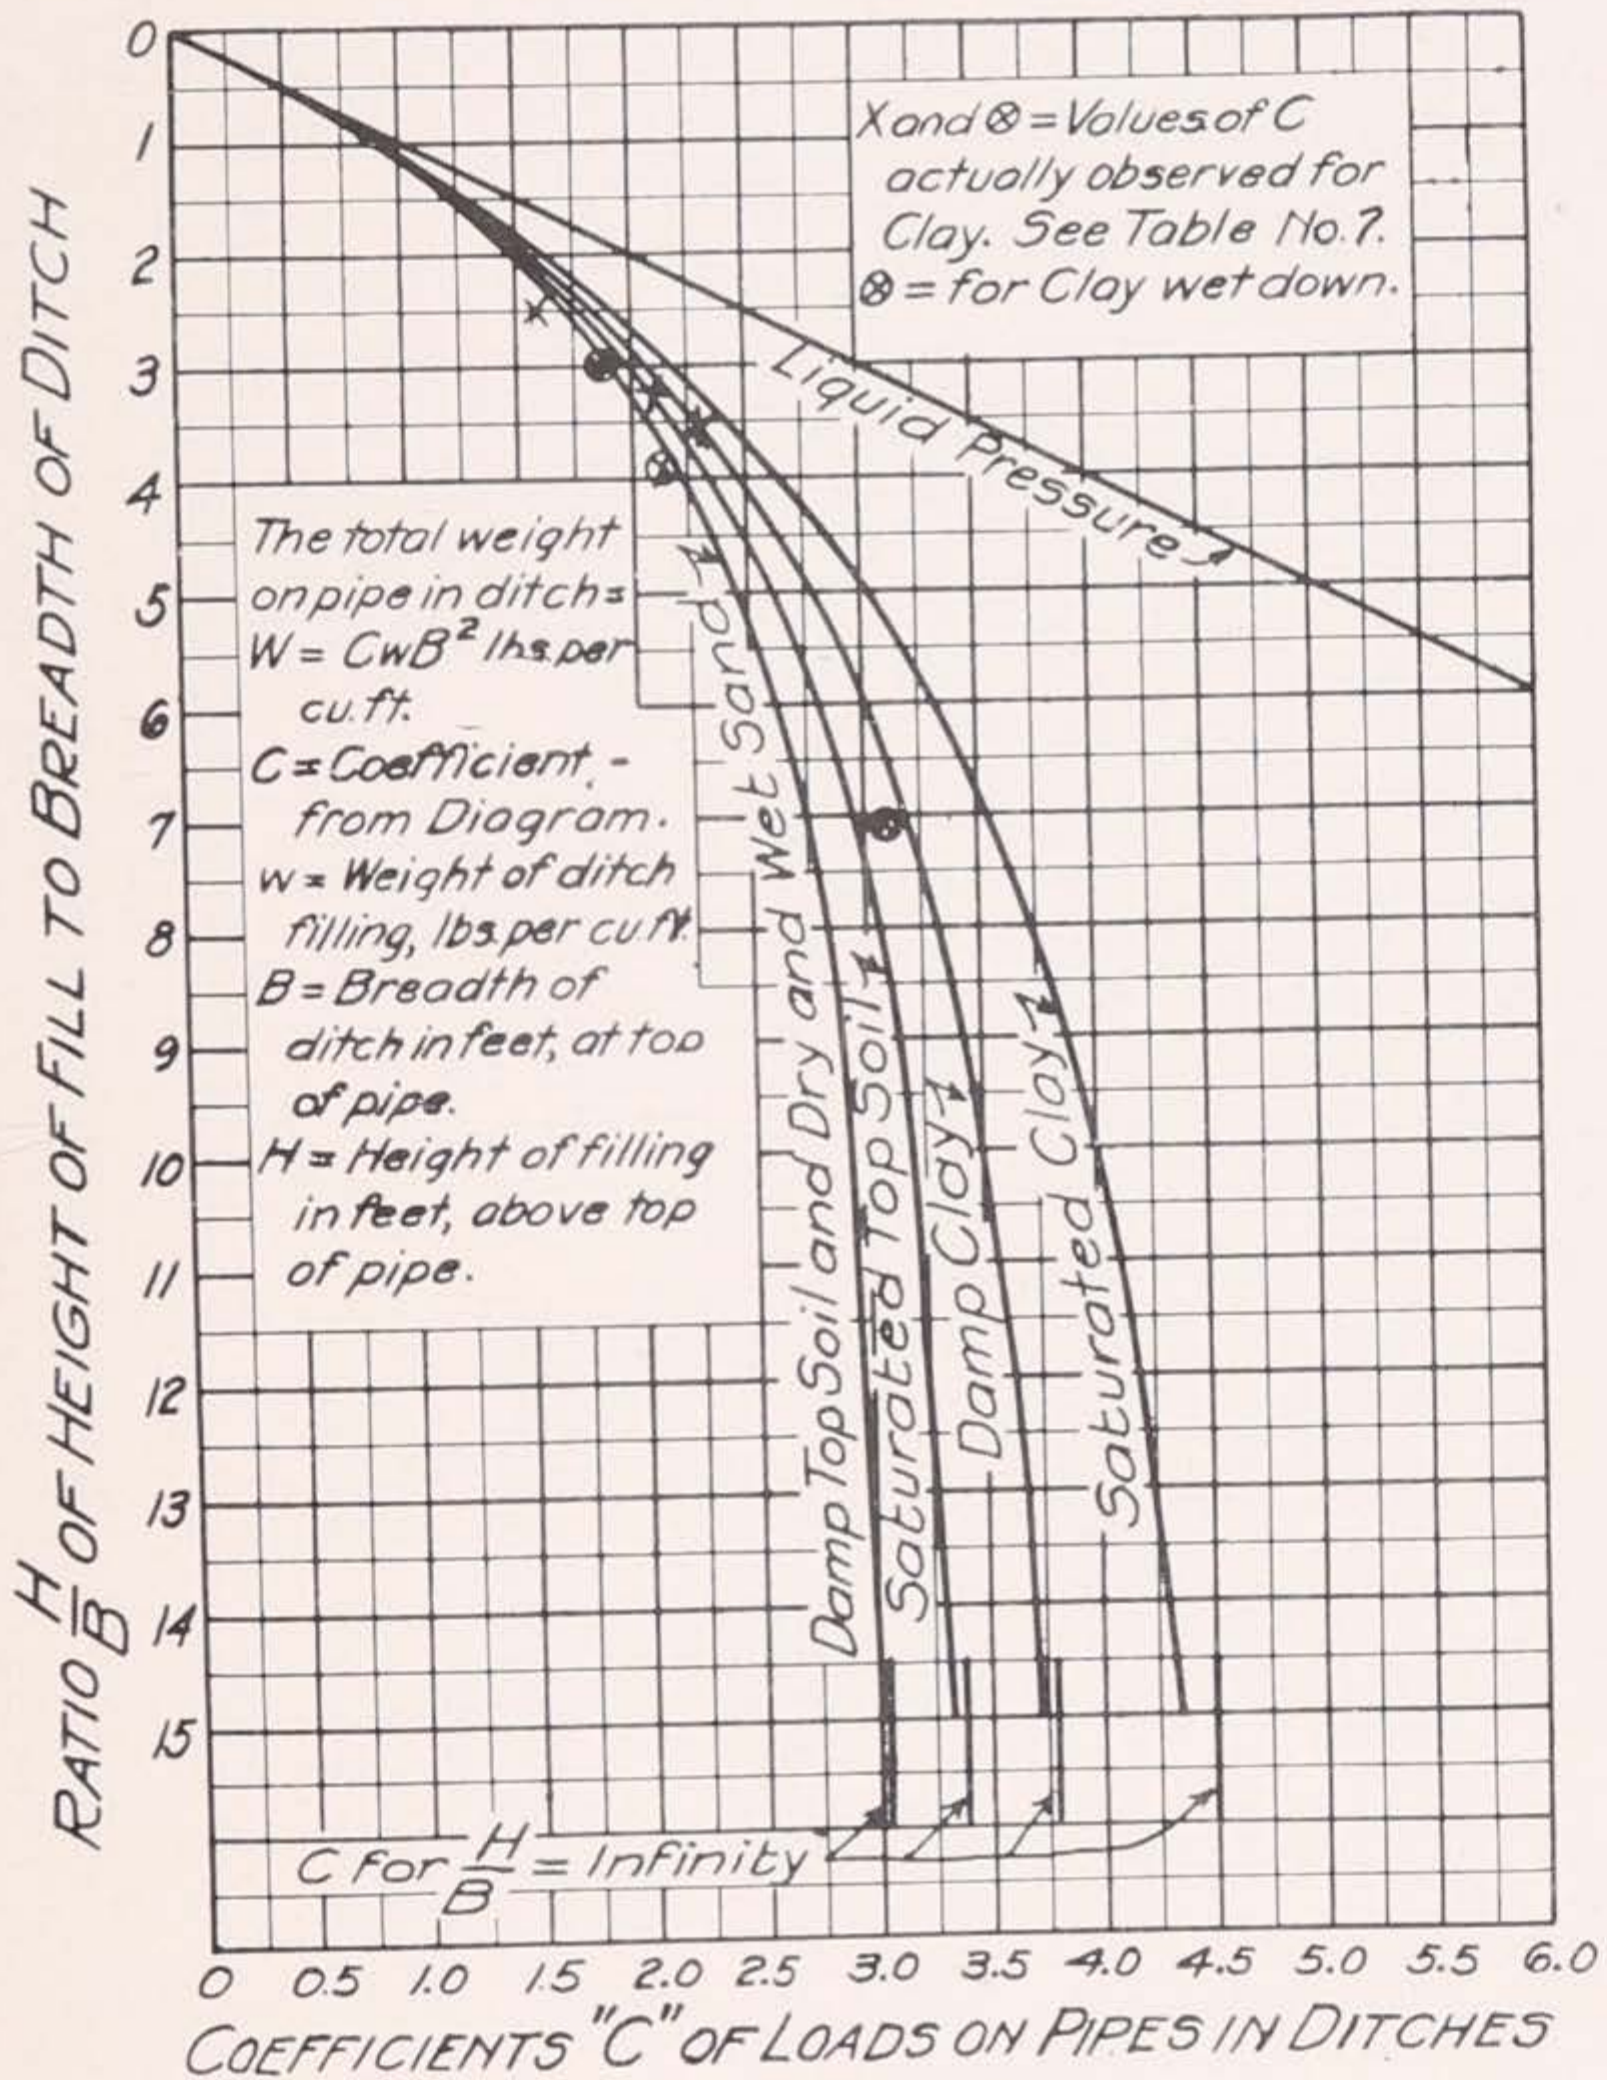 RATIO H/B OF HEIGHT OF FILL TO BREADTH OF DITCH
0
1
2
3
4
5
6
7
8
9
10
11
12
13
14
15
X and ⊗ = Values of C
actually observed for
Clay. See Table No. 7.
⊗ = for Clay wet down.
Liquid Pressure
The total weight
on pipe in ditch =
W = CwB² lbs. per
cu. ft.
C = Coefficient -
from Diagram.
w = Weight of ditch
filling, lbs. per cu. ft.
B = Breadth of
ditch in feet, at top
of pipe.
H = Height of filling
in feet, above top
of pipe.
Damp Top Soil and Dry and Wet Sand
Saturated Top Soil
Damp Clay
Saturated Clay
C for H/B = Infinity
0 0.5 1.0 1.5 2.0 2.5 3.0 3.5 4.0 4.5 5.0 5.5 6.0
COEFFICIENTS "C" OF LOADS ON PIPES IN DITCHES